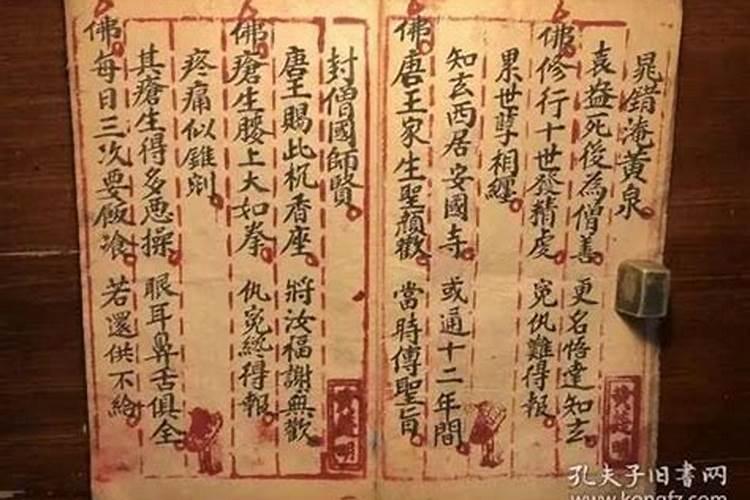 晁錯淹黄泉
袁益死後為僧善 更名悟達知玄
佛修行十世發精虔 冤仇難得報
累世孽相纏
知玄西居安國寺 或通十二年間
佛唐王家生聖顏歡 當時傳聖旨
封僧國師賢
唐王賜此杌香座 將汝福謝無歡
佛瘡生腰上大如拳 仇冤終得報
疼痛似錐剜
其瘡生得多惡操 眼耳鼻舌俱全
佛每日三次要飯飡 若還供不給
孔夫子旧书网
www.kongfz.com